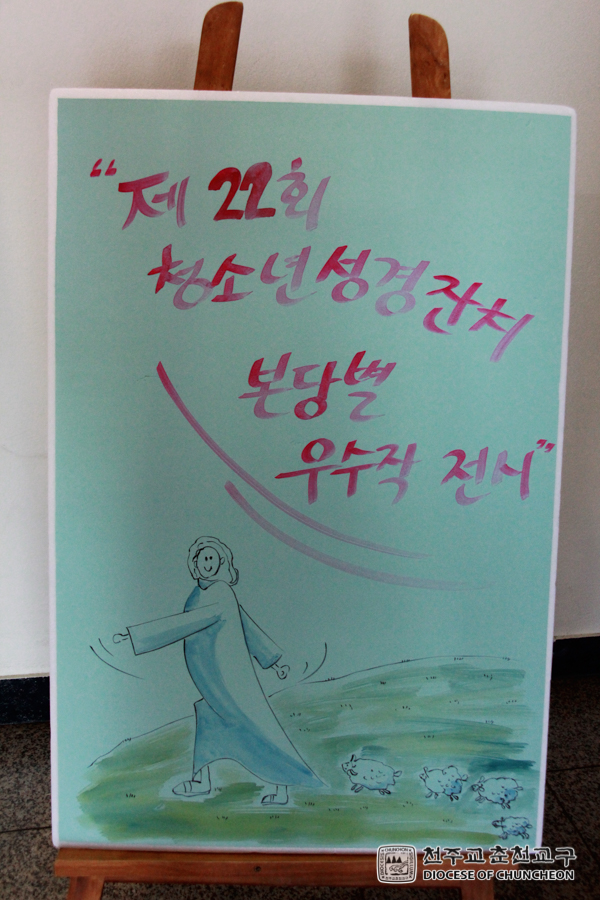 “제 22회
청소년성경잔치
본당별
우수작 전시”
천주교 춘천교구
DIOCESE OF CHUNCHEON